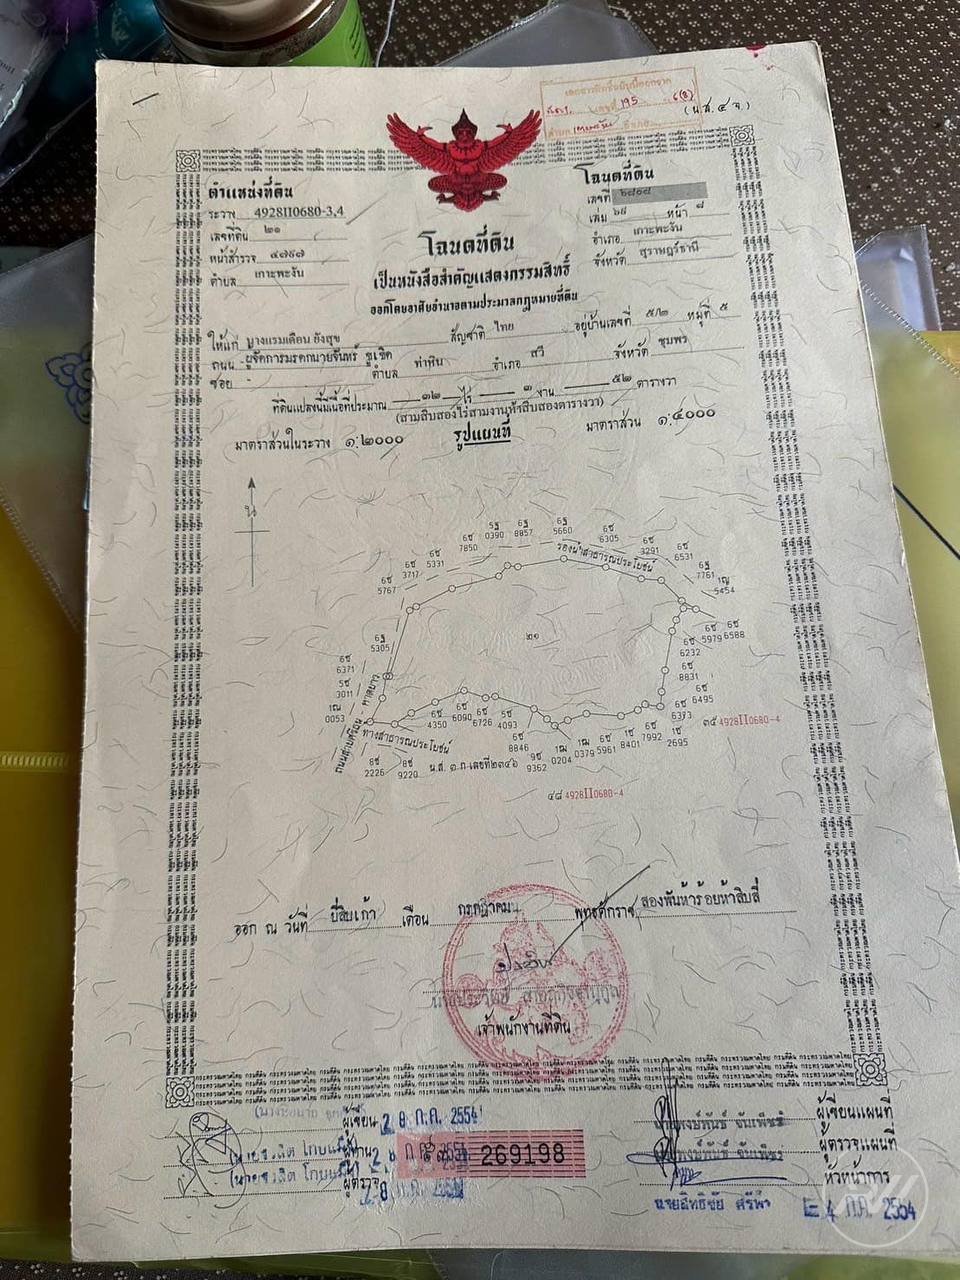 (น.ส. ๔ จ.)
ตำแหน่งที่ดิน
ระวาง 4928II0680-3,4
เลขที่ดิน ๒๑
หน้าสำรวจ ๔๗๕๗
ตำบล เกาะพะงัน
โฉนดที่ดิน
เลขที่
เล่ม ๖๙ หน้า ๘
อำเภอ เกาะพะงัน
จังหวัด สุราษฎร์ธานี
โฉนดที่ดิน
เป็นหนังสือสำคัญแสดงกรรมสิทธิ์
ออกโดยอาศัยอำนาจตามประมวลกฎหมายที่ดิน
ให้แก่ นางแรมเดือน ยังสุข สัญชาติ ไทย อยู่บ้านเลขที่ ๕/๒ หมู่ที่ ๕
ถนน ผู้จัดการมรดกนายจันทร์ ชูเชิด ตำบล ท่าหิน อำเภอ สวี จังหวัด ชุมพร
ซอย
ที่ดินแปลงนี้มีเนื้อที่ประมาณ ๓๒ ไร่ ๓ งาน ๕๒ ตารางวา
(สามสิบสองไร่สามงานห้าสิบสองตารางวา)
มาตราส่วนในระวาง ๑:๒๐๐๐ รูปแผนที่ มาตราส่วน ๑:๔๐๐๐
น
5ฐ 0390
6ฐ 8857
5ฐ 5660
6ช 6305
6ช 7850
6ช 5331
6ช 3717
6ช 5767
6ช 3291
6ช 6531
6ฐ 7761
1ญ 5454
ร่องน้ำสาธารณประโยชน์
๒๑
6ช 5979
6ช 6588
6ช 6232
6ช 8831
6ช 6495
6ช 6373
6ฐ 5305
6ช 6371
5ช 3011
1ญ 0053
ทางสาธารณประโยชน์
6ช 4350
6ช 6090
6ช 6726
5ช 4093
6ช 8846
9ช 9362
1ฌ 0204
1ฌ 0379
6ช 5961
1ช 8401
6ช 7992
1ช 2695
8ช 2226
8ช 9220
น.ส. ๓ ก เลขที่๒๓๔๖
๓๕ 4928II0680-4
๔๘ 4928II0680-4
ออก ณ วันที่ ยี่สิบเก้า เดือน กรกฎาคม พุทธศักราช สองพันห้าร้อยห้าสิบสี่
เจ้าพนักงานที่ดิน
ผู้เขียน 2 8 ก.ค. 2554
ผู้ทาน
ผู้ตรวจ
269198
ผู้เขียนแผนที่
ผู้ตรวจแผนที่
หัวหน้าการ
นายสิทธิชัย ศรีฟ้า
ก.ค. 2554